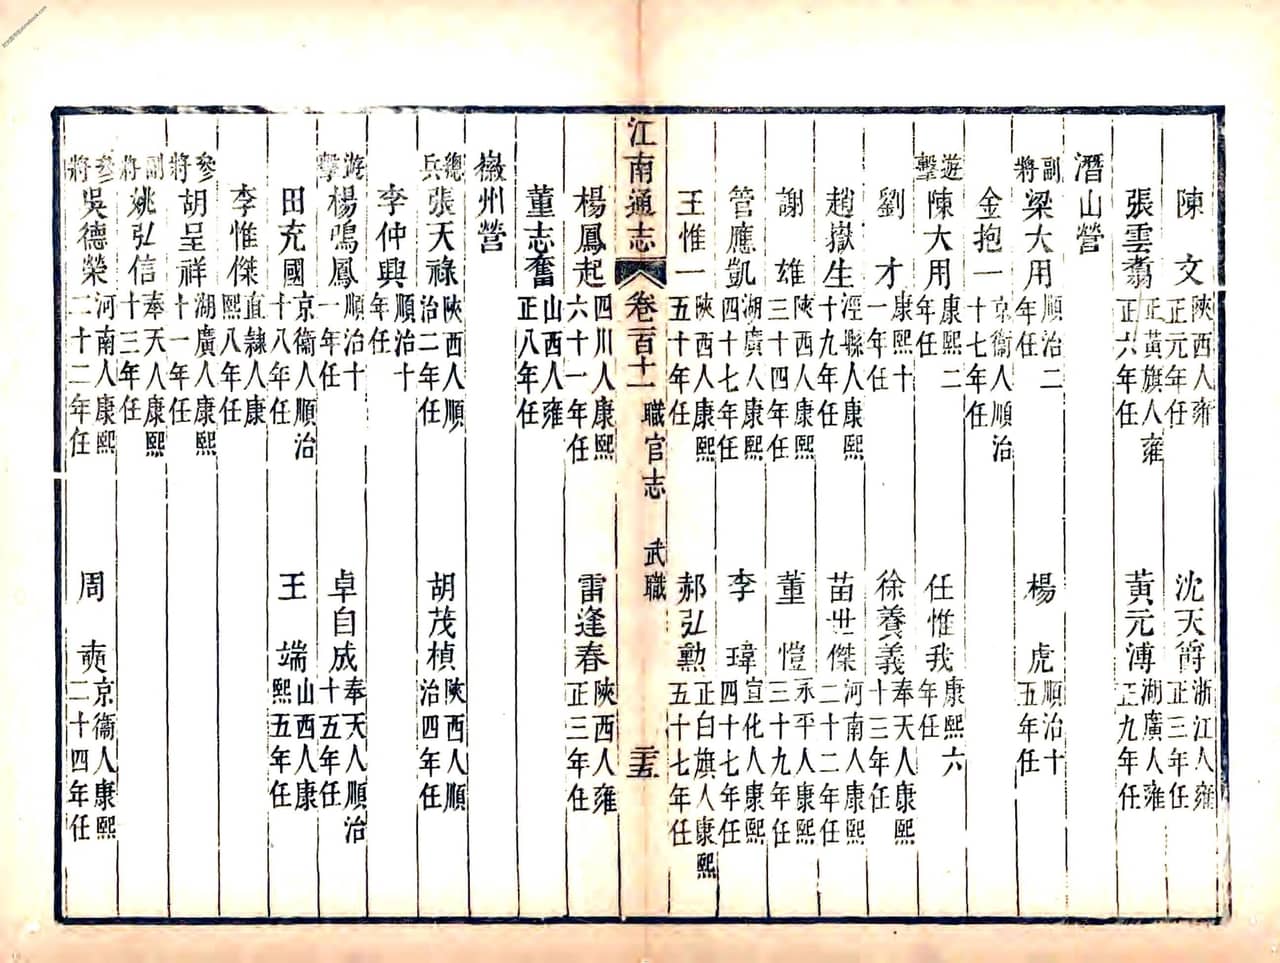 陳　文陝西人雍正元年任　沈天爵浙江人雍正三年任
張雲翥正黃旗人雍正六年任　黃元溥湖廣人雍正九年任
潛山營
副將梁大用順治二年任　楊　虎順治十五年任
金抱一京衞人順治十七年任
遊擊陳大用康熙二年任　任惟我康熙六年任
劉　才康熙十一年任　徐養義奉天人康熙十三年任
趙嶽生涇縣人康熙十九年任　苗世傑河南人康熙二十二年任
謝　雄陝西人康熙三十四年任　董　愷永平人康熙三十九年任
管應凱湖廣人康熙四十七年任　李　瑋宣化人康熙四十七年任
王惟一陝西人康熙五十年任　郝弘勳正白旗人康熙五十七年任
江南通志　卷一百十一　職官志　武職　三十五
楊鳳起四川人康熙六十一年任　雷逢春陝西人雍正三年任
董志奮山西人雍正八年任
徽州營
總兵張天祿陝西人順治二年任　胡茂楨陝西人順治四年任
李仲興順治十年任
遊擊楊鳴鳳順治十一年任　卓自成奉天人順治十五年任
田充國京衞人順治十八年任　王　端山西人康熙五年任
李惟傑直隸人康熙八年任
參將胡呈祥湖廣人康熙十一年任
副將姚弘信奉天人康熙十三年任
參將吳德榮河南人康熙二十二年任　周　奭京衞人康熙二十四年任